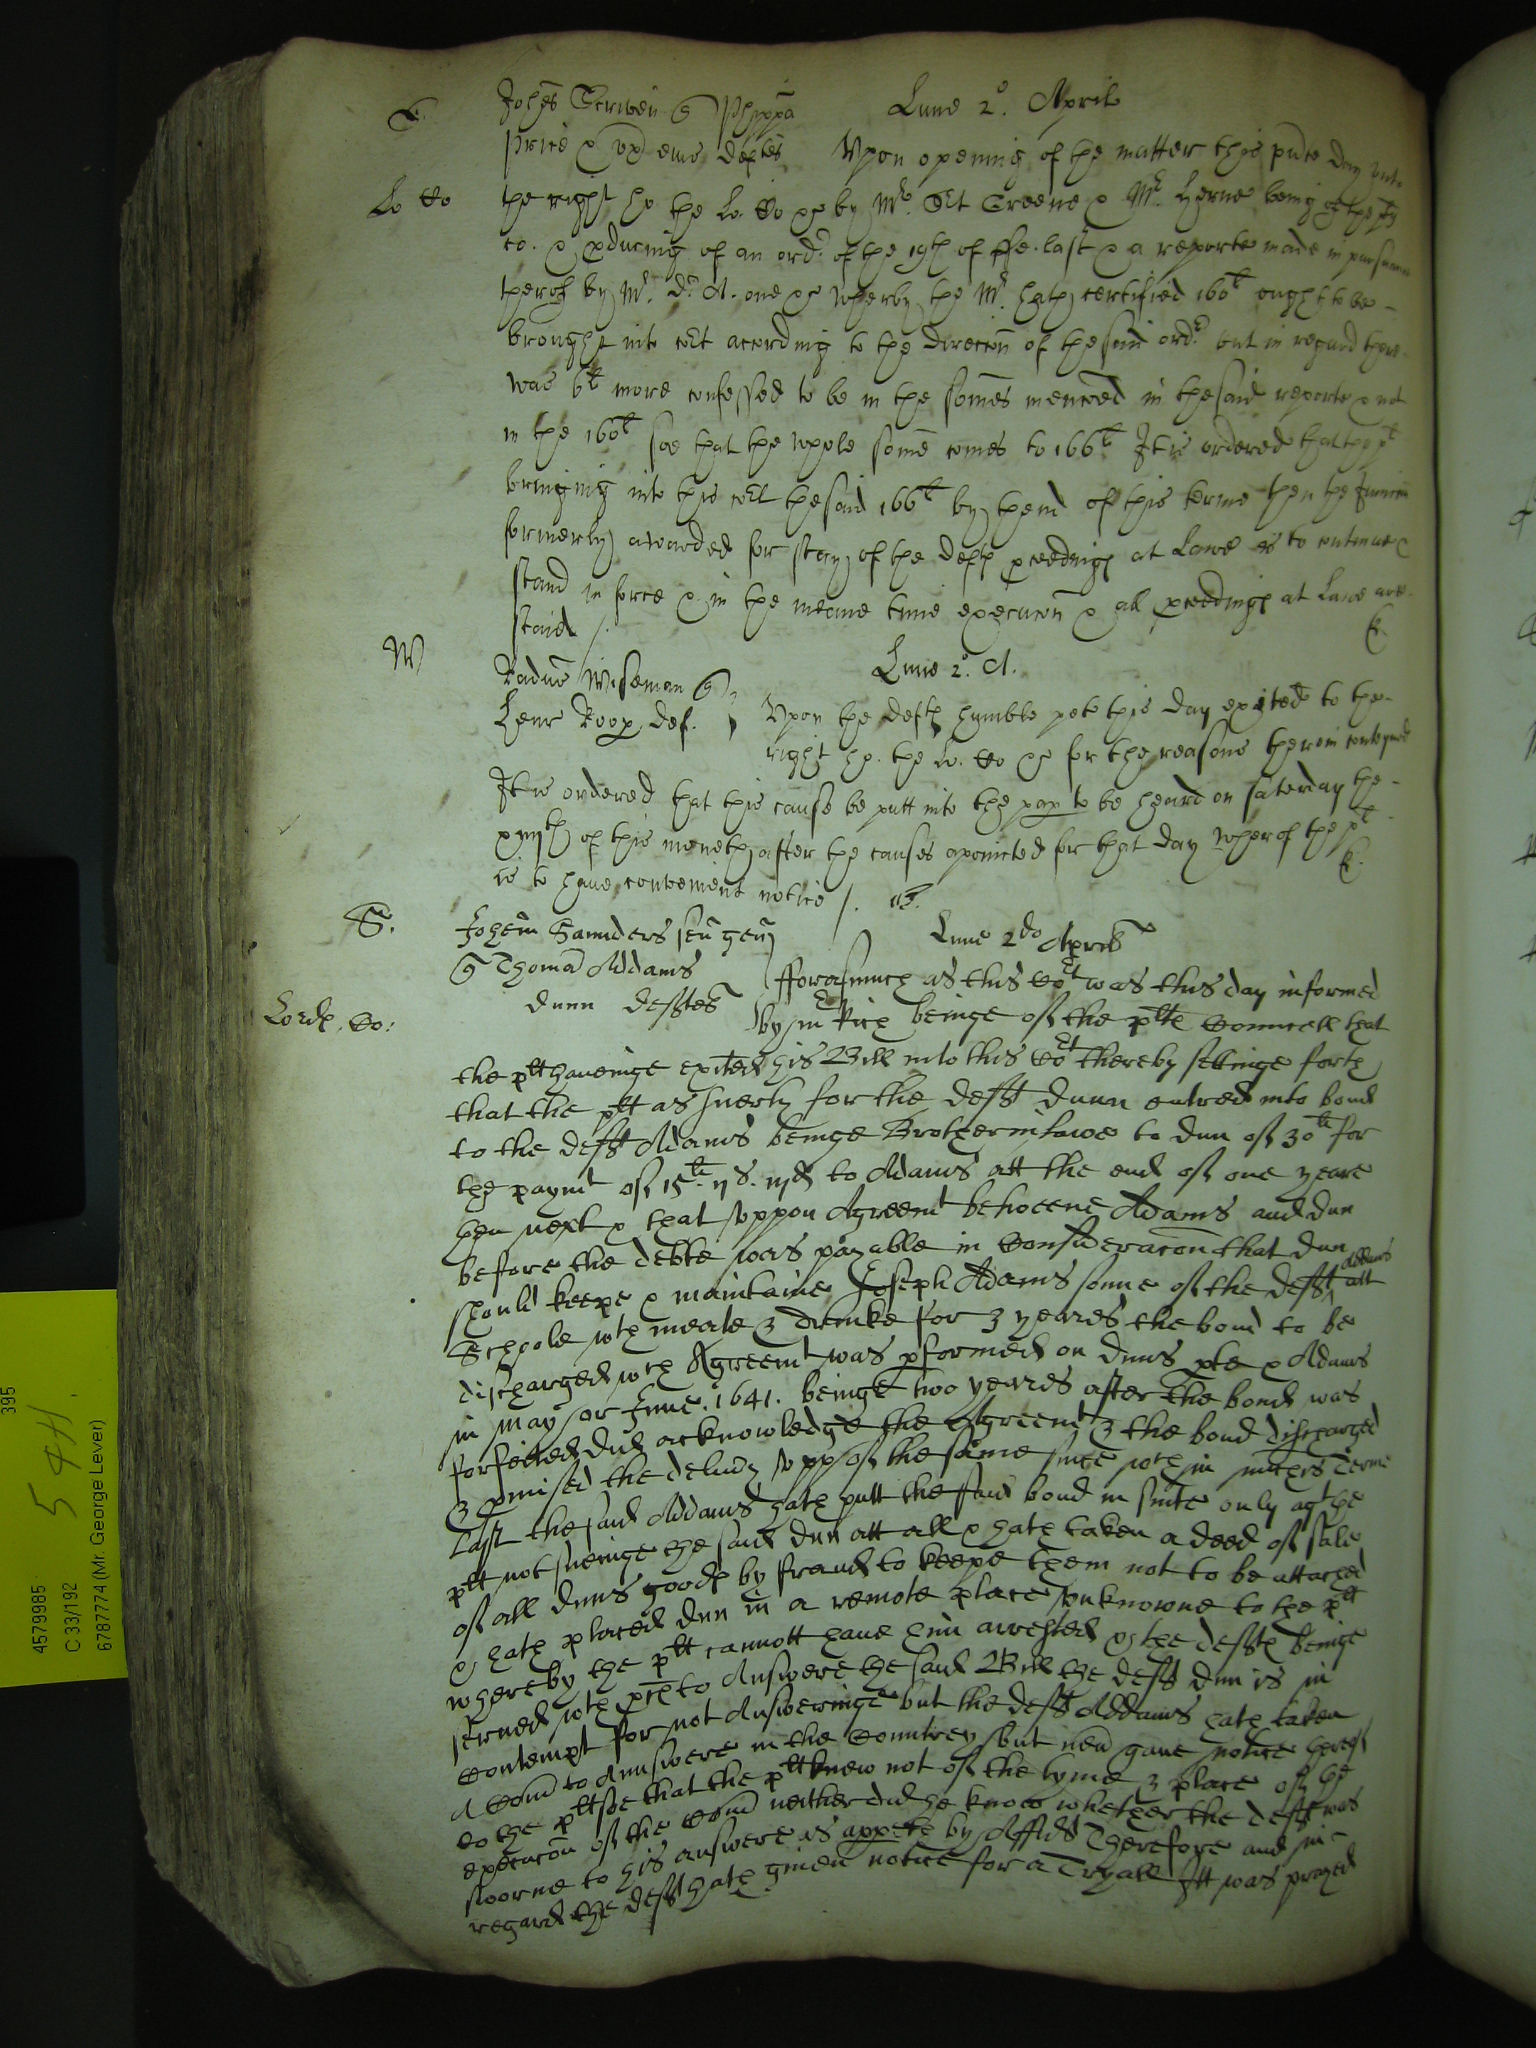 T. Johes Terwen q Phyppū Lune 2°. Aprilis
Price & ux eius deftes Upon opening of the matter this pnte day unto
Lo Co the right ho the Lo. Co &c by Mr. Att Greene & Mr. Herne being of the pts
co. & pducing of an ordr. of the 19th of ffe. last & a reporte made in pursuance
therof by Mr. Dr. A. one &c wherby the Mr. hath certified 160l ought to be
brought into Cot according to the direccon of the said ordr. but in regard there
was 6l more confessed to be in the somes mencoed in the said reporte & not
in the 160l soe that the whole some comes to 166l It is ordered that the plt
bringing into this Cot the said 166l by thend of this terme then the Iniuncon
formerly awarded for stay of the defts pceedings at Lawe is to continue &
stand in force & in the meane time execucon & all pceedings at Lawe are
staid /.
W Radus Wiseman q Lune 2°. A.
Henr Roop def. Upon the defts humble peto this day exited to the
right ho. the Lo. Co &c for the reasons therein conteyned
It is ordered that this cause be putt into the pap to be heard on saterday the
of this moneth after the causes apointed for that day wherof the plt
is to have convenient notice /.
S. Johem Saunders sen gen Lune 2do Aprilis
q Thoma Addams fforasmuch as this Cot was this day informed
Lords. Co: dunn defftes by mr Rich beinge of the plts Councell that
the plt haveinge exited his Bill into this Cot thereby settinge forth
that the plt as suerty for the defft dunn entred into bond
to the defft Adams beinge Brother in lawe to dun of 30li for
the paymt of 15li. to Adams att the end of one yeare
then next & that uppon Agreemt betweene Adams and dun
before the debte was payable in Consideracon that dun
should keepe & maintaine Joseph Adams sonne of the defft Addams att
Schoole wth meate & drinke for 3 yeares the bond to be
discharged wch Agreemt was pformed on duns pte & Adams
in may or June. 1641. beinge two yeares after the bond was
forfeited did acknowledge the Agreemt & the bond discharged
& pmised the delivy upp of the same since wch in michis Terme
last the said Addams hath putt the said bond in suite only agt the
plt not sueinge the said dun att all & hath taken a deed of sale
of all duns goods by fraud to keepe them not to be attached
& hath placed dun in a remote place unknowne to the plt
whereby the plt cannott have him arrested & the deffts beinge
served wth pces to Answere the said Bill the defft dun is in
contempt for not Answeringe but the defft Addams hath taken
a Com to Answere in the Countrey but nevr gave notice hereof
to the plt soe that the plt knew not of the tyme & place of the
execucon of the Com neither did he know whether the defft was
sworne to his answere as appeth by Affidt Therefore and in
regard the defft hath given notice for a Tryall Itt was prayed
395
544
4579985
C 33/192
6787774 (Mr. George Lever)